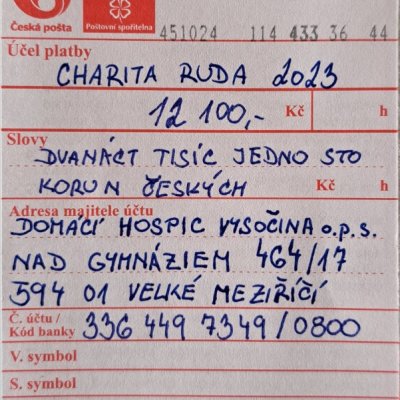 Česká pošta
Poštovní spořitelna
451024 114 433 36 44
Účel platby
CHARITA RUDA 2023
12 100,- Kč h
Slovy
DVANÁCT TISÍC JEDNO STO
KORUN ČESKÝCH Kč h
Adresa majitele účtu
DOMÁCÍ HOSPIC VYSOČINA o.p.s.
NAD GYMNÁZIEM 464/17
594 01 VELKÉ MEZIŘÍČÍ
Č. účtu /
Kód banky 336 449 7349/0800
V. symbol
S. symbol